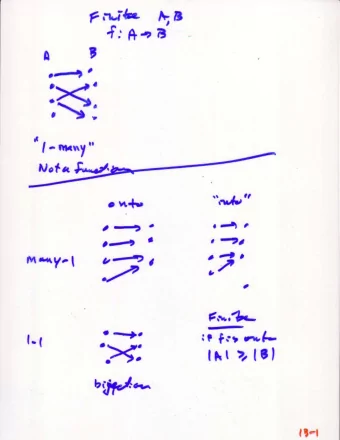 Finite A, B
f: A → B
A B
"1-many"
Not a function
onto "into"
many-1
1-1
bijection
Finite
if f is onto
|A| ≥ |B|
13-1